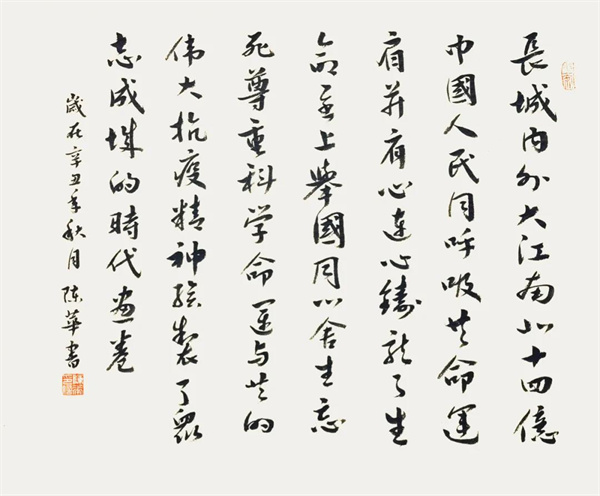 長城内外大江南北十四億
中國人民同呼吸共命運
肩并肩心連心鑄就了生
命至上舉國同心舍生忘
死尊重科学命運与共的
伟大抗疫精神绘製了眾
志成城的時代畫卷
歲在辛丑年秋月陈華書